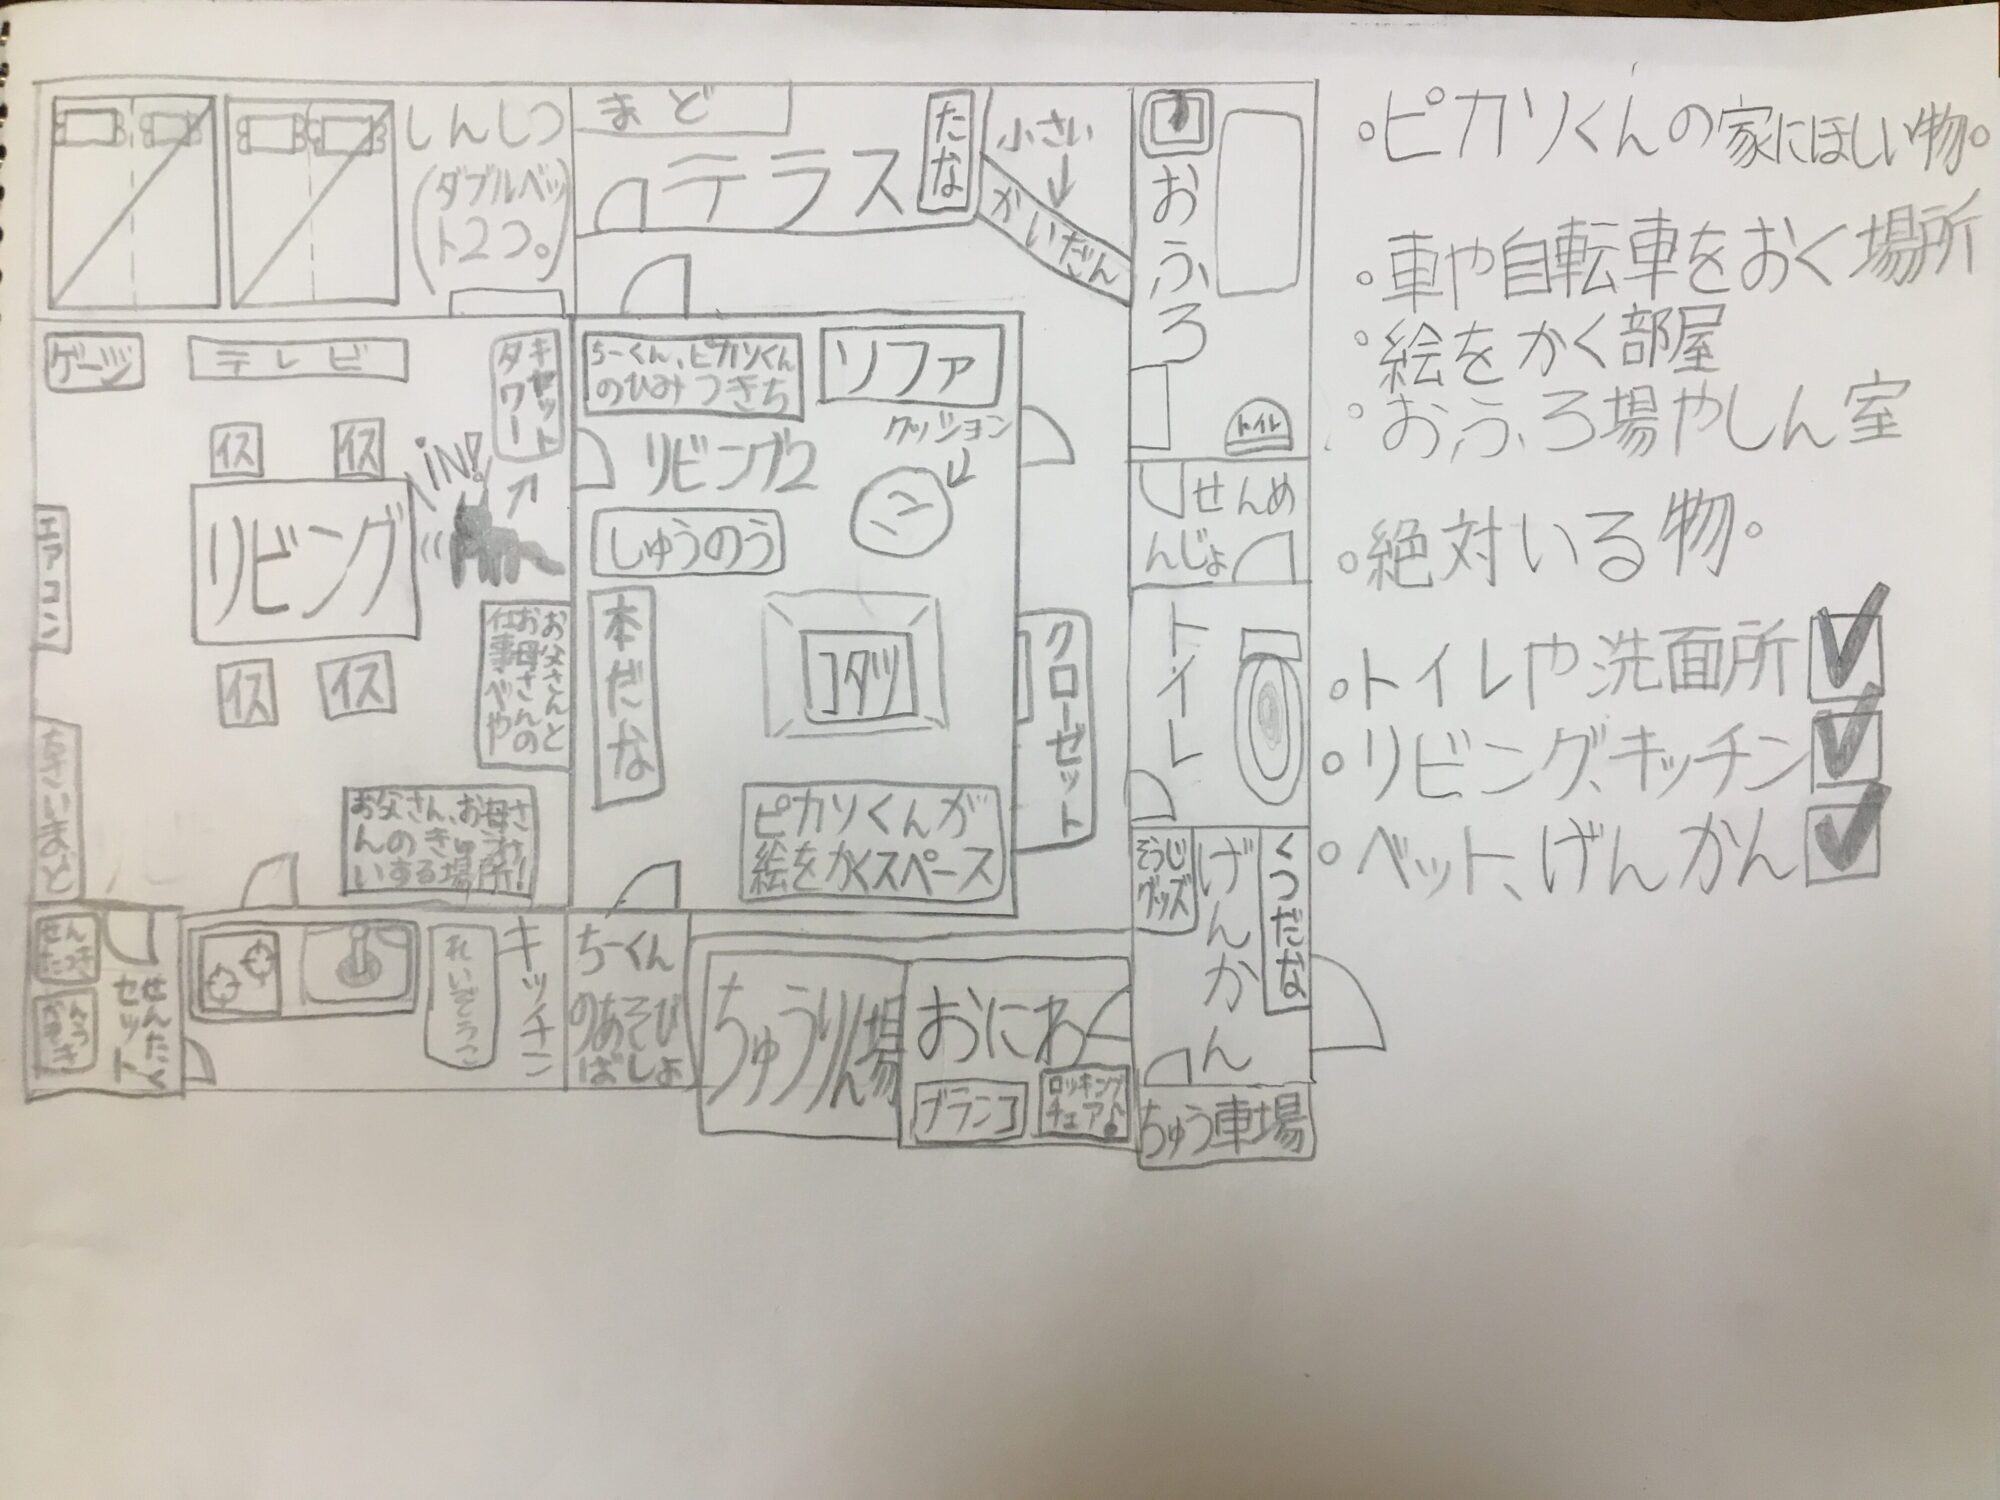 しんしつ
(ダブルベッ
ト2つ。)
まど
テラス
たな
小さい
かいだん
おふろ
トイレ
せんめ
んじょ
トイレ
ゲーム
テレビ
キャット
タワー
イス
イス
iN!
リビング
イス
イス
エアコン
お父さんと
お母さんの
仕事べや
お父さん、お母さ
んのきゅうけ
いする場所!
ちーくん、ピカソくん
のひみつきち
ソファ
クッション
リビング2
しゅうのう
本だな
コタツ
クローゼット
ピカソくんが
絵をかくスペース
せんたく
セット
れいぞうこ
キッチン
ちーくん
のあそび
ばしょ
ちゅうりん場
おにわ
ブランコ
ロッキング
チェア♪
そうじ
グッズ
げんかん
くつだな
ちゅう車場
◦ピカソくんの家にほしい物。
◦車や自転車をおく場所
◦絵をかく部屋
◦おふろ場やしん室
◦絶対いる物。
◦トイレや洗面所
◦リビング、キッチン
◦ベット、げんかん